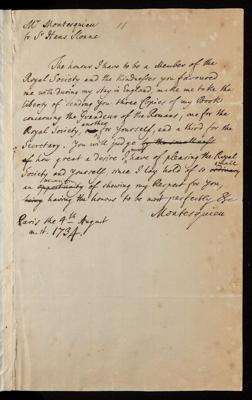 Mr. Montesquieu 11
to Sr. Hans Sloane
The honour I have to be a Member of the
Royal Society and the kindnesses you favoured
me with during my stay in England, make me take the
liberty of sending You three Copies of my Book
concerning the Grandeur of the Romans, one for the
Royal Society, another for Yourself, and a third for the
Secretary. You will judge by the smallness
of how great a desire I have of pleasing the Royal
Society and Yourself, since I lay hold of so small
an occasion of showing my Respect for You,
having the honour to be most perfectly &c
Montesquieu
Paris the 4th August
n.st. 1734.